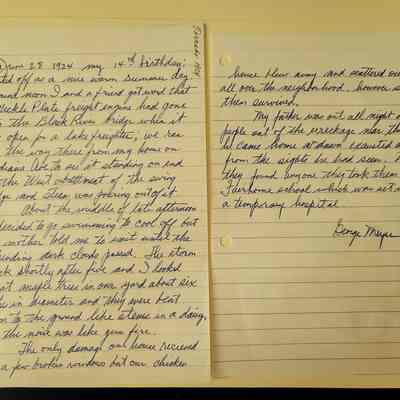 June 28 1924 my 14th birthday;
ted off as a nice warm summer day
ound noon I and a friend got word that
Nickle Plate freight engine had gone
the Black River bridge when it
open for a lake freighter, we ran
the way there from my home on
diana Ave to see it standing on end
the West abuttment of the swing
ge and steam was poking out of it.
About the middle of late afternoon
decided to go swimming to cool off but
mother told me to wait until the
ending dark clouds passed. The storm
ck shortly after five and I looked
at maple trees in our yard about six
in diameter and they were bent
to the ground like stems in a daisy,
the noise was like gun fire.
The only damage our house recieved
a few broken windows but our chicken
house blew away and scattered
all over the neighborhood. however
them survived.
My father was out all night
people out of the wreckage near the
came home at dawn exausted
from the sights he had seen.
they found anyone they took them
Fairhome school which was set
a temporary hospital
George Meyer